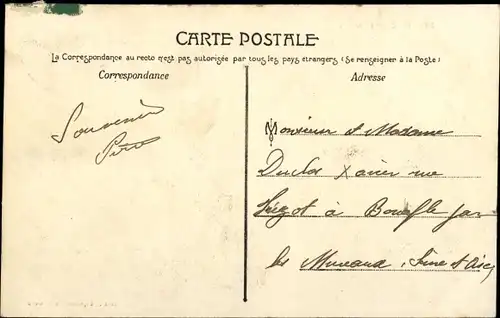 CARTE POSTALE
La Correspondance au recto n'est pas autorisée par tous les pays étrangers (Se renseigner à la Poste)
Correspondance
Adresse
Souvenir
Monsieur et Madame
rue
à Bouafle par
les Mureaux, Seine et Oise